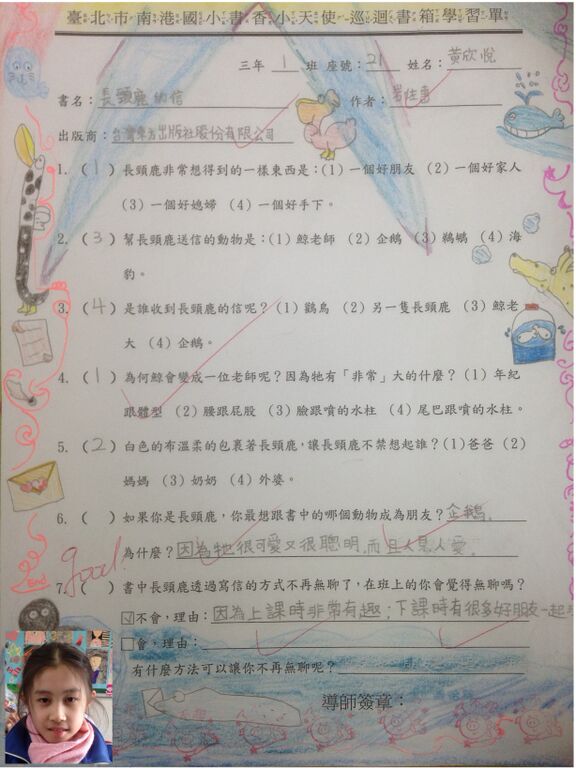 臺北市南港國小書香小天使巡迴書箱學習單
三年 1 班 座號：21 姓名：黃欣悅
書名：長頸鹿的信 作者：岩佐惠
出版商：台灣東方出版社股份有限公司
1.（1）長頸鹿非常想得到的一樣東西是：（1）一個好朋友 （2）一個好家人
（3）一個好媳婦 （4）一個好手下。
2.（3）幫長頸鹿送信的動物是：（1）鯨老師 （2）企鵝 （3）鵜鶘 （4）海
豹。
3.（4）是誰收到長頸鹿的信呢？（1）鸛鳥 （2）另一隻長頸鹿 （3）鯨老
大 （4）企鵝。
4.（1）為何鯨會變成一位老師呢？因為牠有「非常」大的什麼？（1）年紀
跟體型 （2）腰跟屁股 （3）臉跟噴的水柱 （4）尾巴跟噴的水柱。
5.（2）白色的布溫柔的包裹著長頸鹿，讓長頸鹿不禁想起誰？（1）爸爸 （2）
媽媽 （3）奶奶 （4）外婆。
6.（ ）如果你是長頸鹿，你最想跟書中的哪個動物成為朋友？企鵝，
為什麼？因為牠很可愛又很聰明，而且人見人愛。
good!
7.（ ）書中長頸鹿透過寫信的方式不再無聊了，在班上的你會覺得無聊嗎？
☑不會，理由：因為上課時非常有趣；下課時有很多好朋友一起
□會，理由：
有什麼方法可以讓你不再無聊呢？
導師簽章：